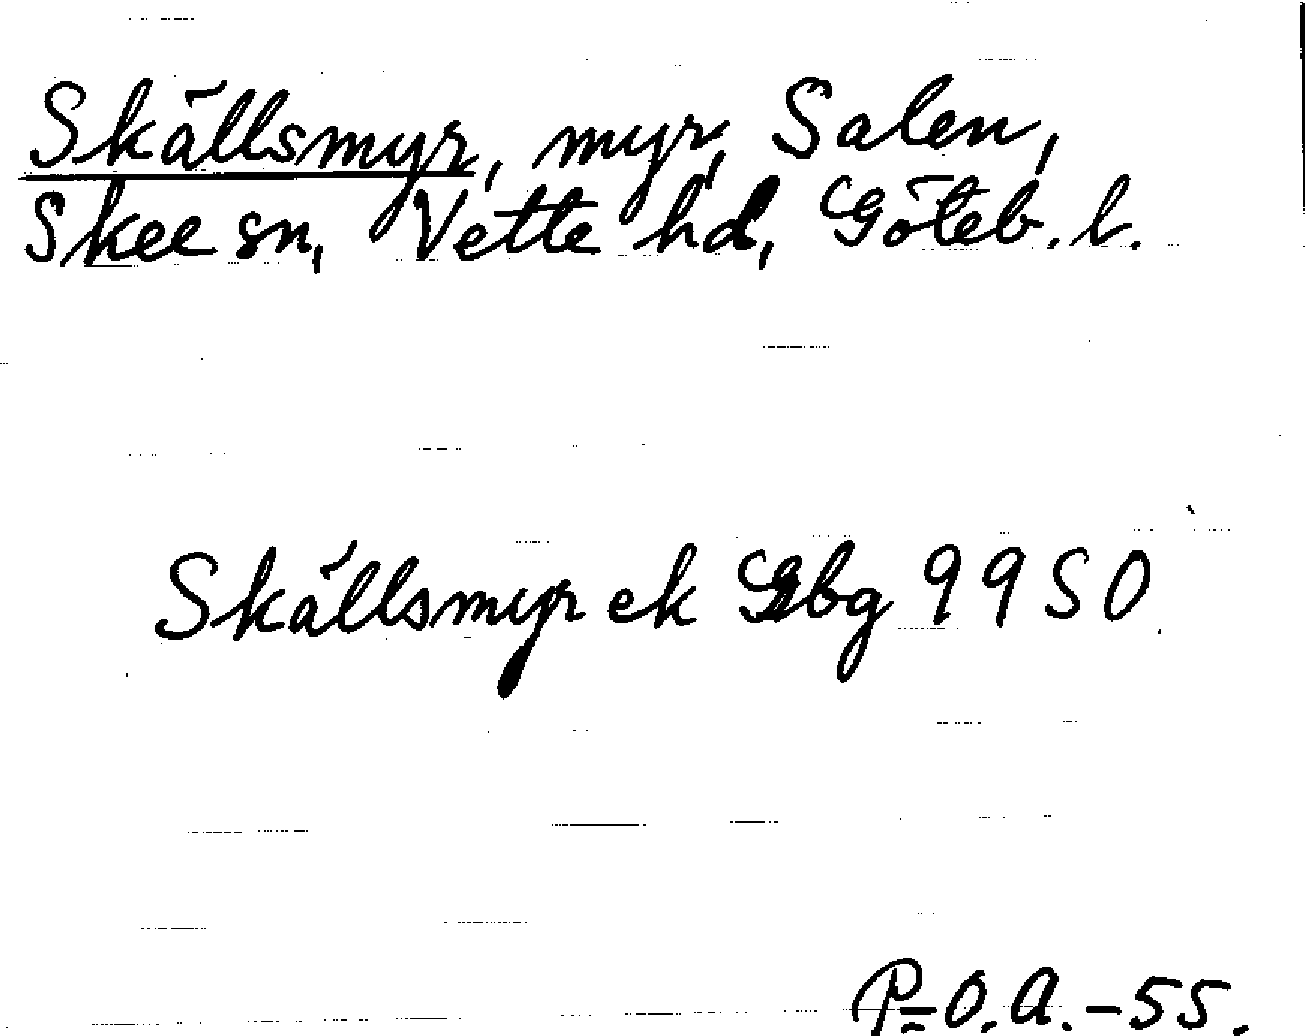 Skällsmyr, myr, Salen,
Skee sn, Vette hd, Göteb. l.
Skällsmyr ek Gbg 99 SO
P-O.A.-55.